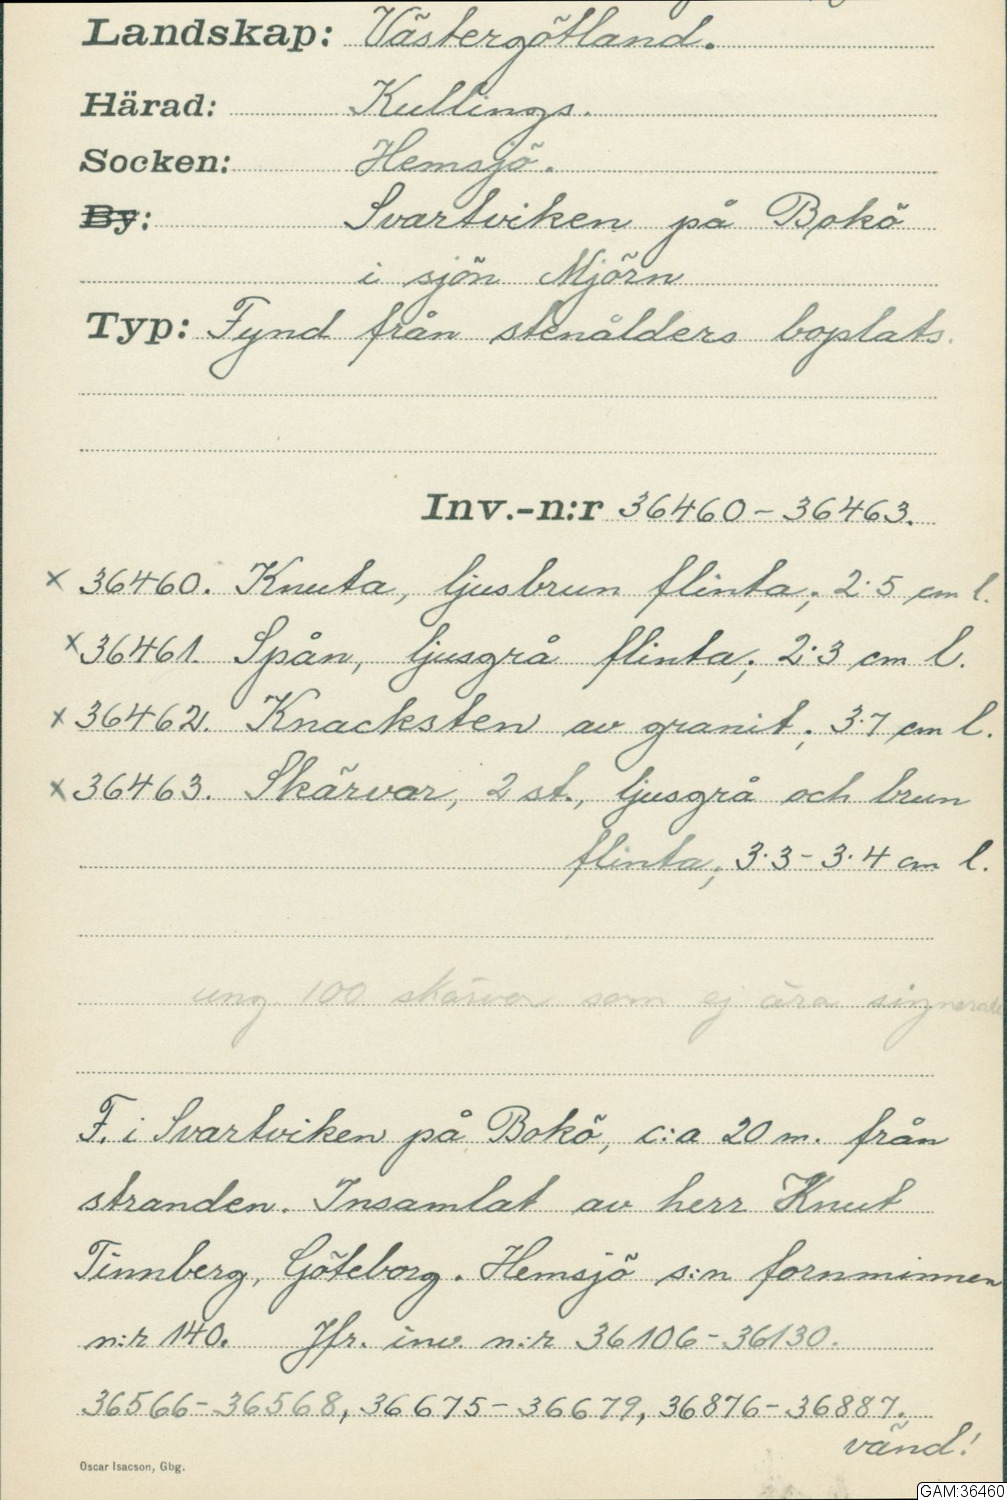 Landskap: Västergötland.
Härad: Kullings.
Socken: Hemsjö.
By: Svartviken på Bokö
i sjön Mjörn
Typ: Fynd från stenålders boplats.
Inv.-n:r 36460-36463.
x 36460. Knuta, ljusbrun flinta; 2·5 cm l.
x 36461. Spån, ljusgrå flinta; 2·3 cm l.
x 36462. Knacksten av granit; 3·7 cm l.
x 36463. Skärvor, 2 st., ljusgrå och brun
flinta; 3·3-3·4 cm l.
ung 100 skärvor som ej äro signerade
F. i Svartviken på Bokö, c:a 20 m. från
stranden. Insamlat av herr Knut
Tinnberg, Göteborg. Hemsjö s:n fornminnen
n:r 140. Jfr. inv. n:r 36106-36130.
36566-36568, 36675-36679, 36876-36887.
vänd!
Oscar Isacson, Gbg.
GAM:36460